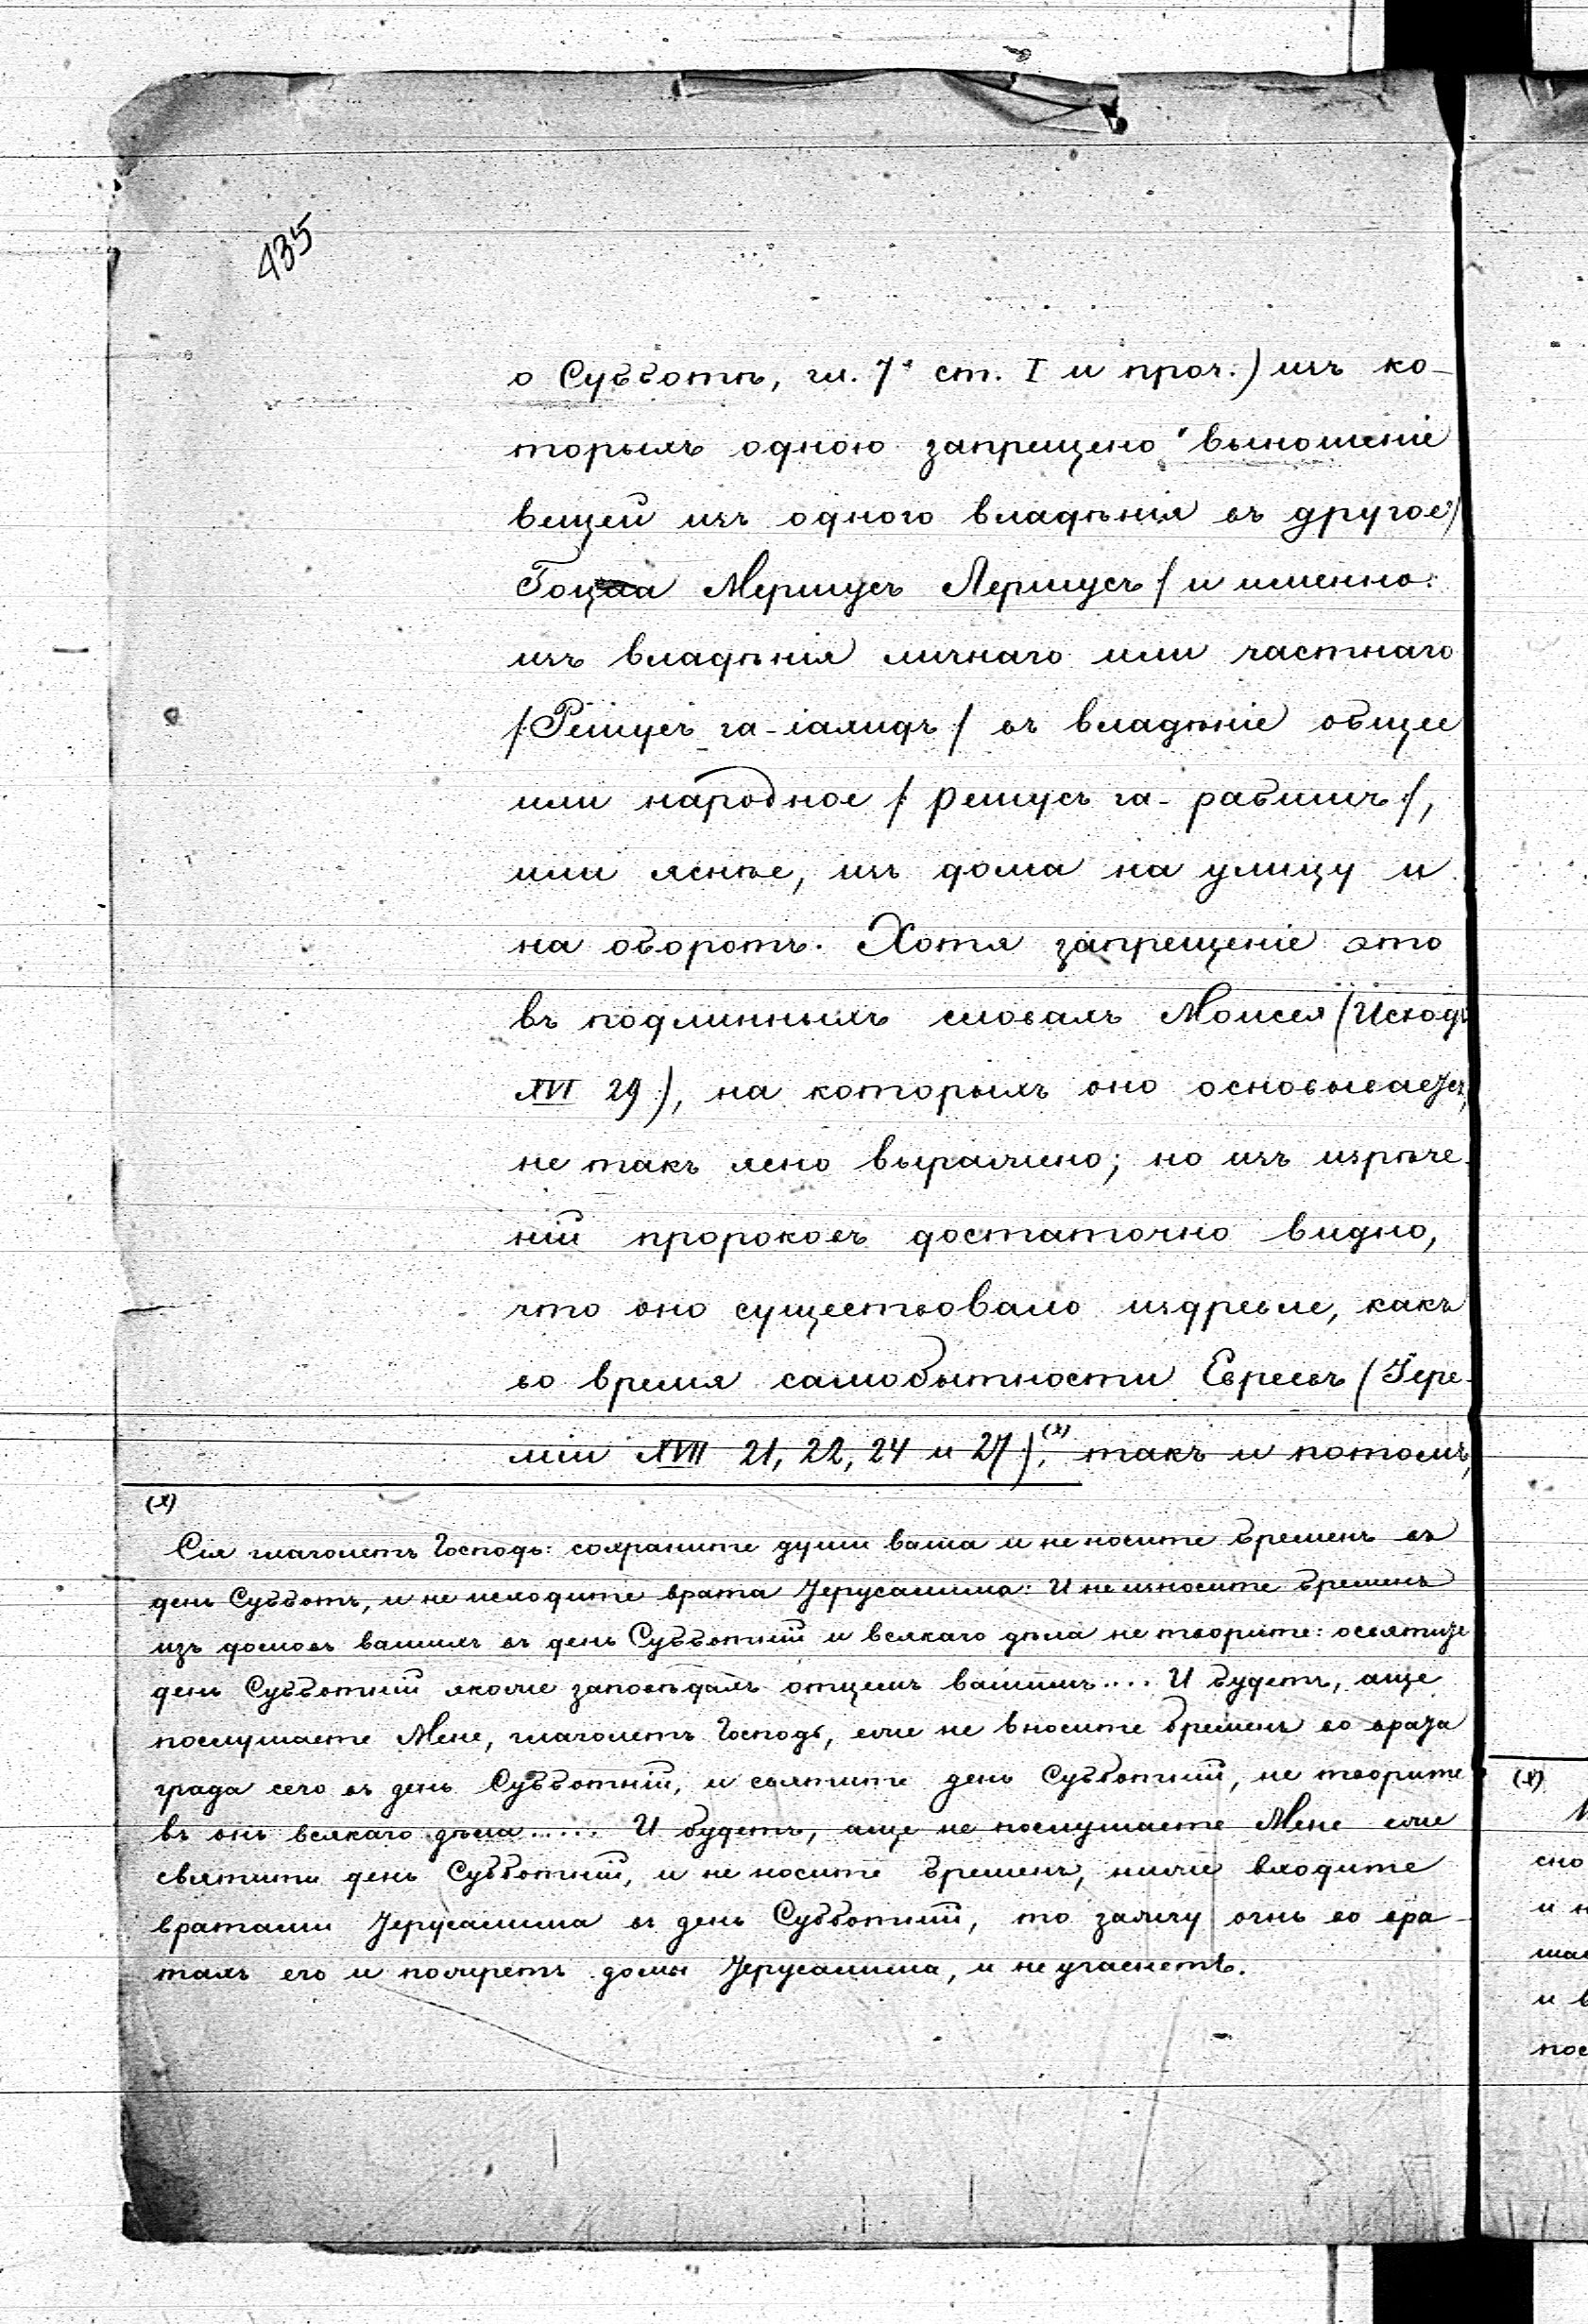 435
о Субботѣ, гл. 7я ст. I и проч.) изъ ко-
торыхъ одною запрещено выношеніе
вещей изъ одного владѣнія въ другое/
Гоцаа Мершусъ Лершусъ / и именно:
изъ владѣнія личнаго или частнаго
/Решусъ га-іахидъ/ въ владѣніе общее
или народное /:решусъ га-рабимъ:/,
или яснѣе, изъ дома на улицу и
на оборотъ. Хотя запрещеніе это
въ подлинныхъ словахъ Моисея (Исходъ
XVI 29), на которыхъ оно основывается,
не такъ ясно выражено; но изъ изрѣче-
ній пророковъ достаточно видно,
что оно существовало издревле, какъ
во время самобытности Евреевъ (Іере-
міи XVII 21, 22, 24 и 27) (x), такъ и потомъ,
(x)
Сія глаголетъ Господь: сохраните души ваша и не носите бременъ въ
день Субботъ, и не исходите врата Іерусалима: И не износите бременъ
изъ домовъ вашихъ въ день Субботній и всякаго дѣла не творите: освятите
день Субботній якоже заповѣдахъ отцемъ вашимъ.... И будетъ, аще
послушаете Мене, глаголетъ Господь, еже не вносите бременъ во врата
града сего въ день Субботній, и святите день Субботній, не творите
въ онь всякаго дѣла..... И будетъ, аще не послушаете Мене еже
святити день Субботній, и не носите бременъ, ниже входите
вратами Іерусалима въ день Субботній, то зажгу огнь во вра-
тахъ его и пожретъ домы Іерусалима, и не угаснетъ.
(x)
сно
и н
и в
пос